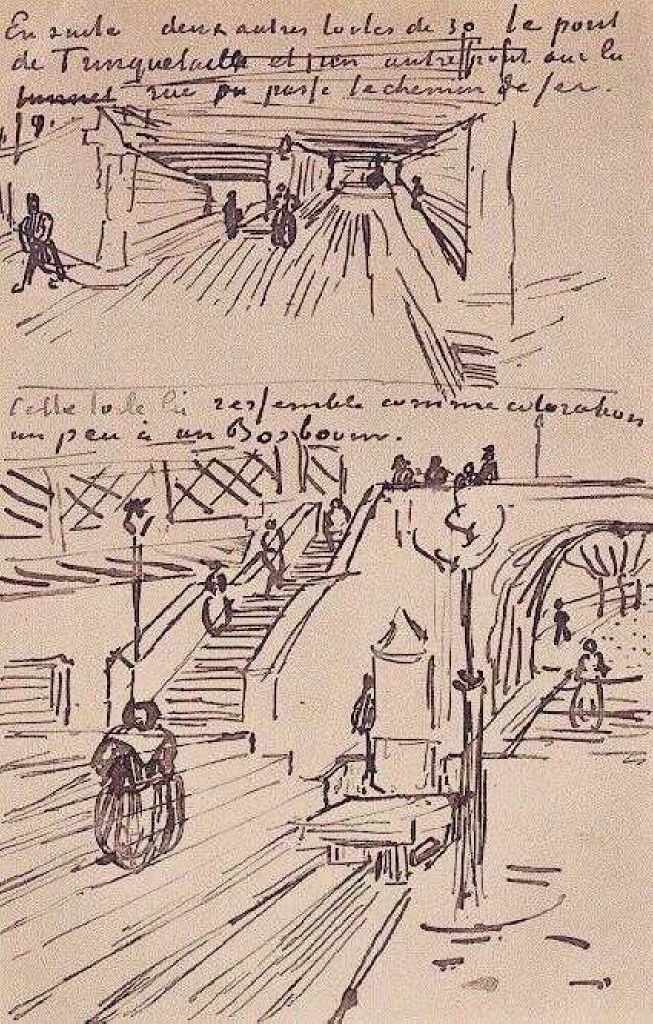 Ensuite deux autres toiles de 30 le pont
de Trinquetaille et un autre pont sur la
rue ou passe le chemin de fer.
Cette toile là ressemble comme coloration
un peu à un Bosboom.